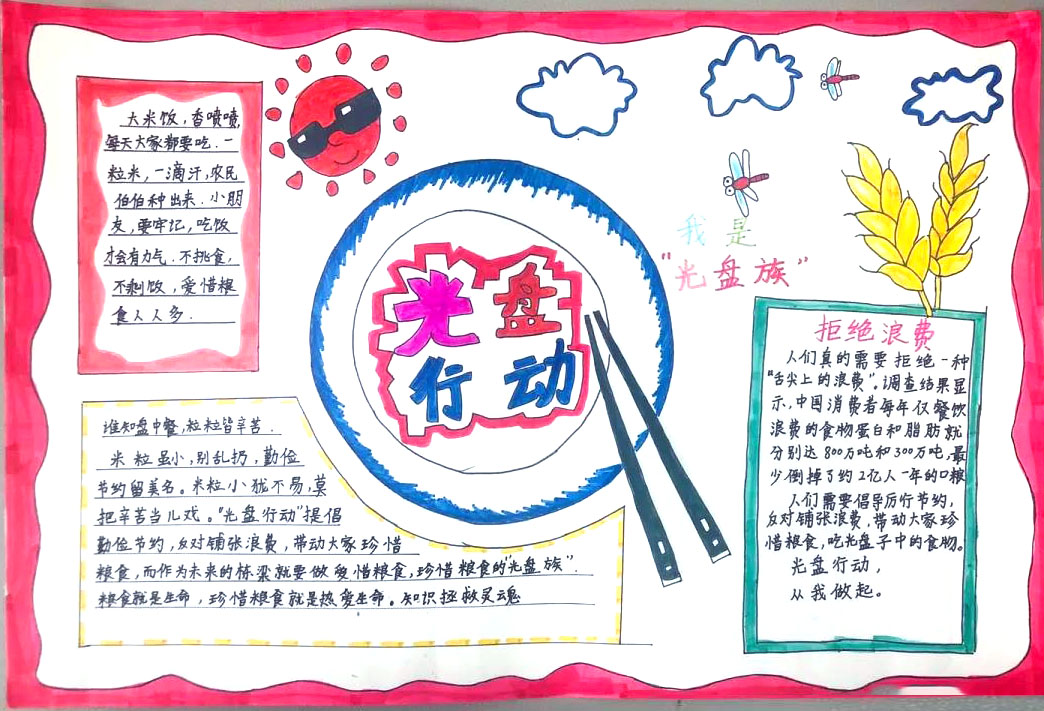 大米饭,香喷喷,
每天大家都要吃.一
粒米,一滴汗,农民
伯伯种出来.小朋
友,要牢记,吃饭
才会有力气.不挑食,
不剩饭,爱惜粮
食人人夸.
光盘
行动
我是
"光盘族"
谁知盘中餐,粒粒皆辛苦.
米粒虽小,别乱扔,勤俭
节约留美名。米粒小犹不易,莫
把辛苦当儿戏。"光盘行动"提倡
勤俭节约,反对铺张浪费,带动大家珍惜
粮食,而作为未来的栋梁就要做爱惜粮食,珍惜粮食的"光盘族".
粮食就是生命,珍惜粮食就是热爱生命。知识拯救灵魂
拒绝浪费
人们真的需要拒绝一种
"舌尖上的浪费"。调查结果显
示,中国消费者每年仅餐饮
浪费的食物蛋白和脂肪就
分别达800万吨和300万吨,最
少倒掉了约2亿人一年的口粮
人们需要倡导厉行节约,
反对铺张浪费,带动大家珍
惜粮食,吃光盘子中的食物。
光盘行动,
从我做起。